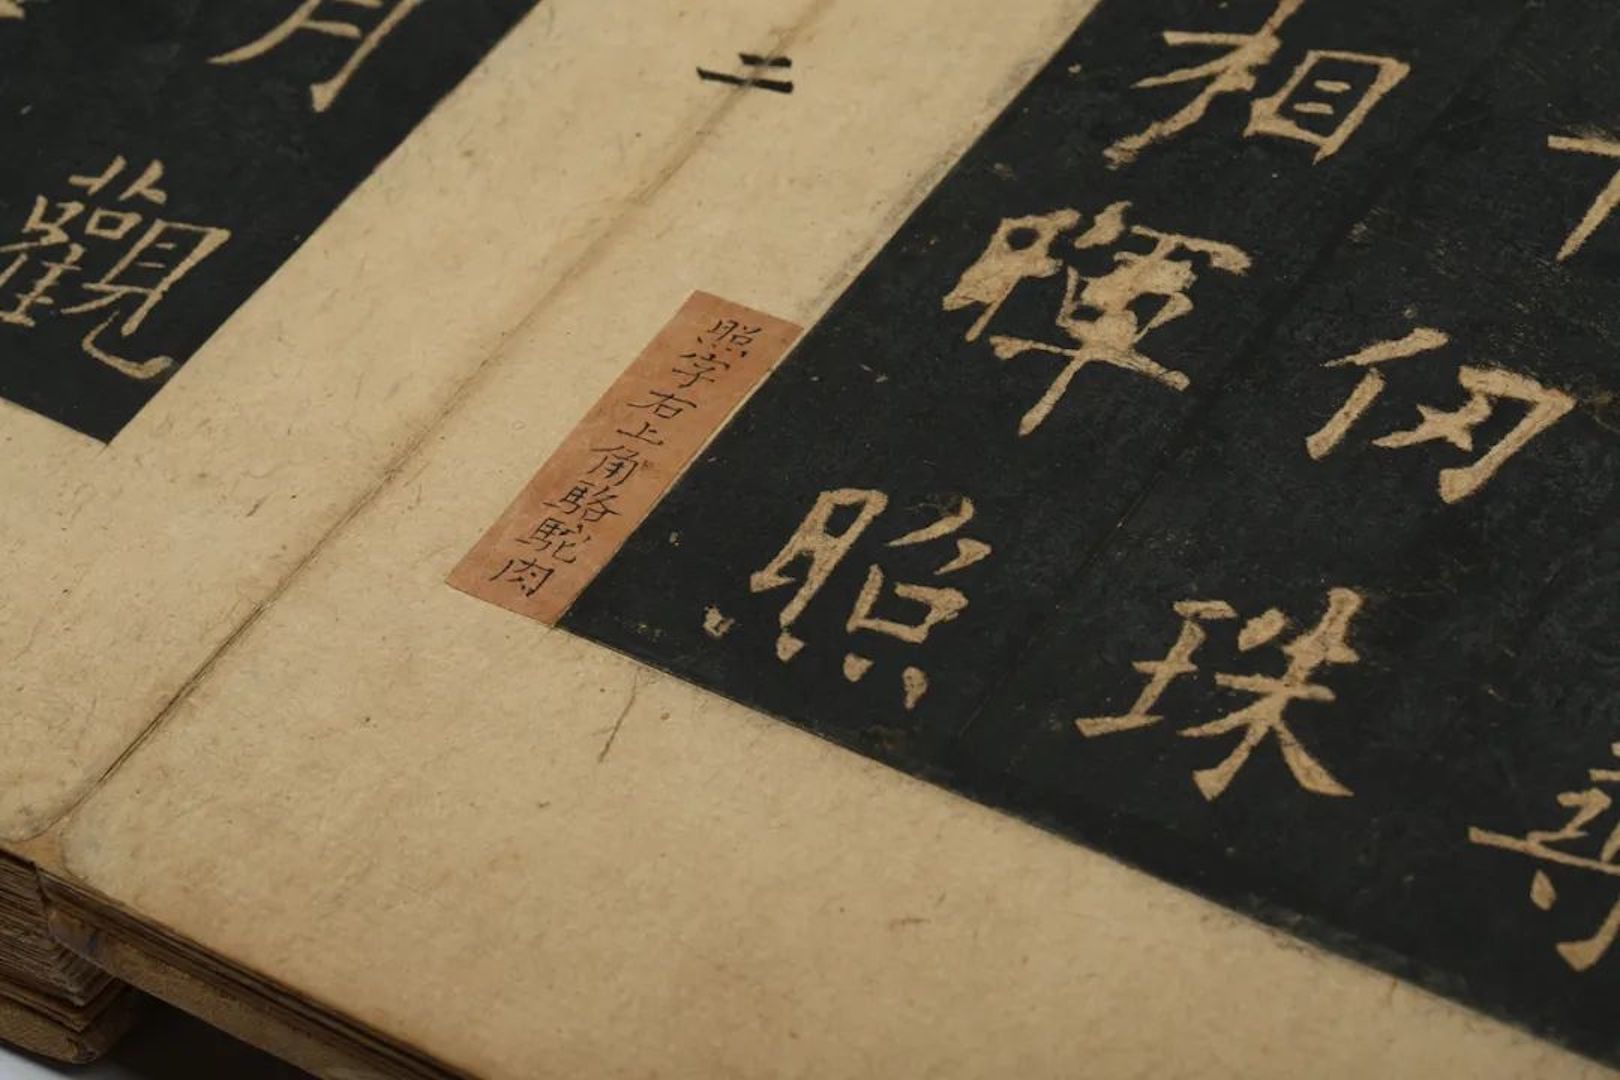 尋
仞珠
相暉照
照字右上角駱駝肉
二
月觀